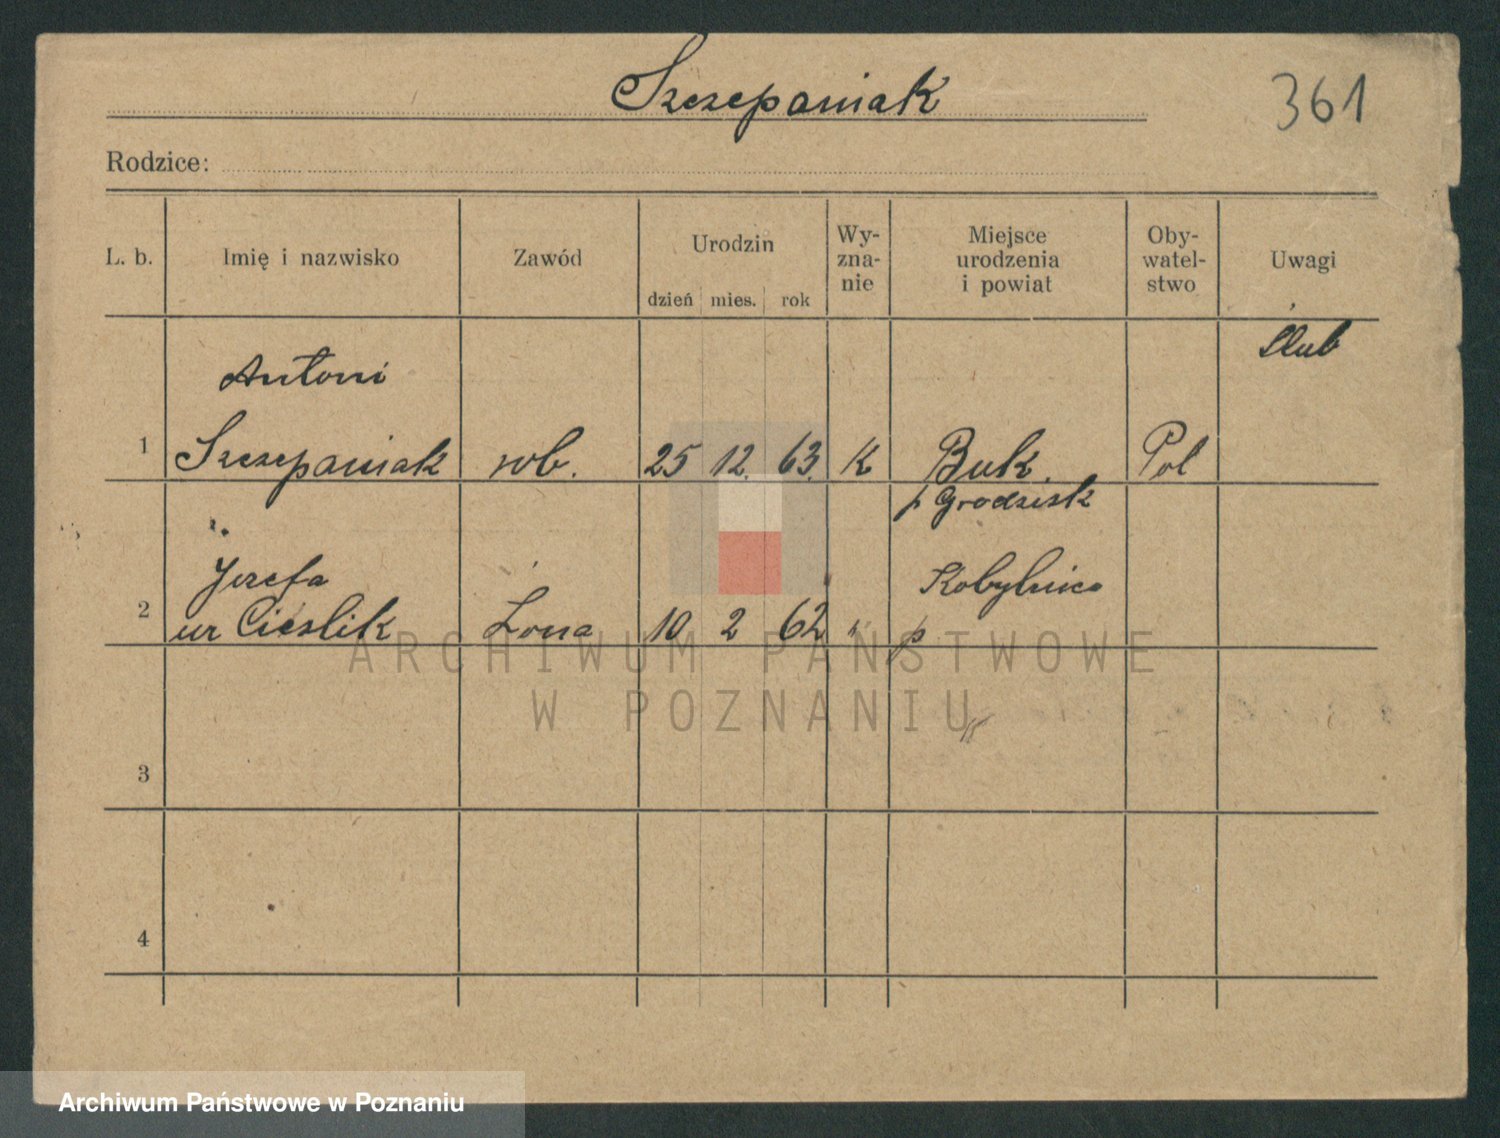 Szczepaniak
361
Rodzice:
L. b.
Imię i nazwisko
Zawód
Urodzin
dzień mies. rok
Wy-
zna-
nie
Miejsce
urodzenia
i powiat
Oby-
watel-
stwo
Uwagi
Ślub
Antoni
1 Szczepaniak rob. 25 12. 63. K Buk. Pol
p Grodzisk
Józefa Kobylnica
2 ur Cieślik Żona 10 2 62 " p
ARCHIWUM PAŃSTWOWE
W POZNANIU
3
4
Archiwum Państwowe w Poznaniu